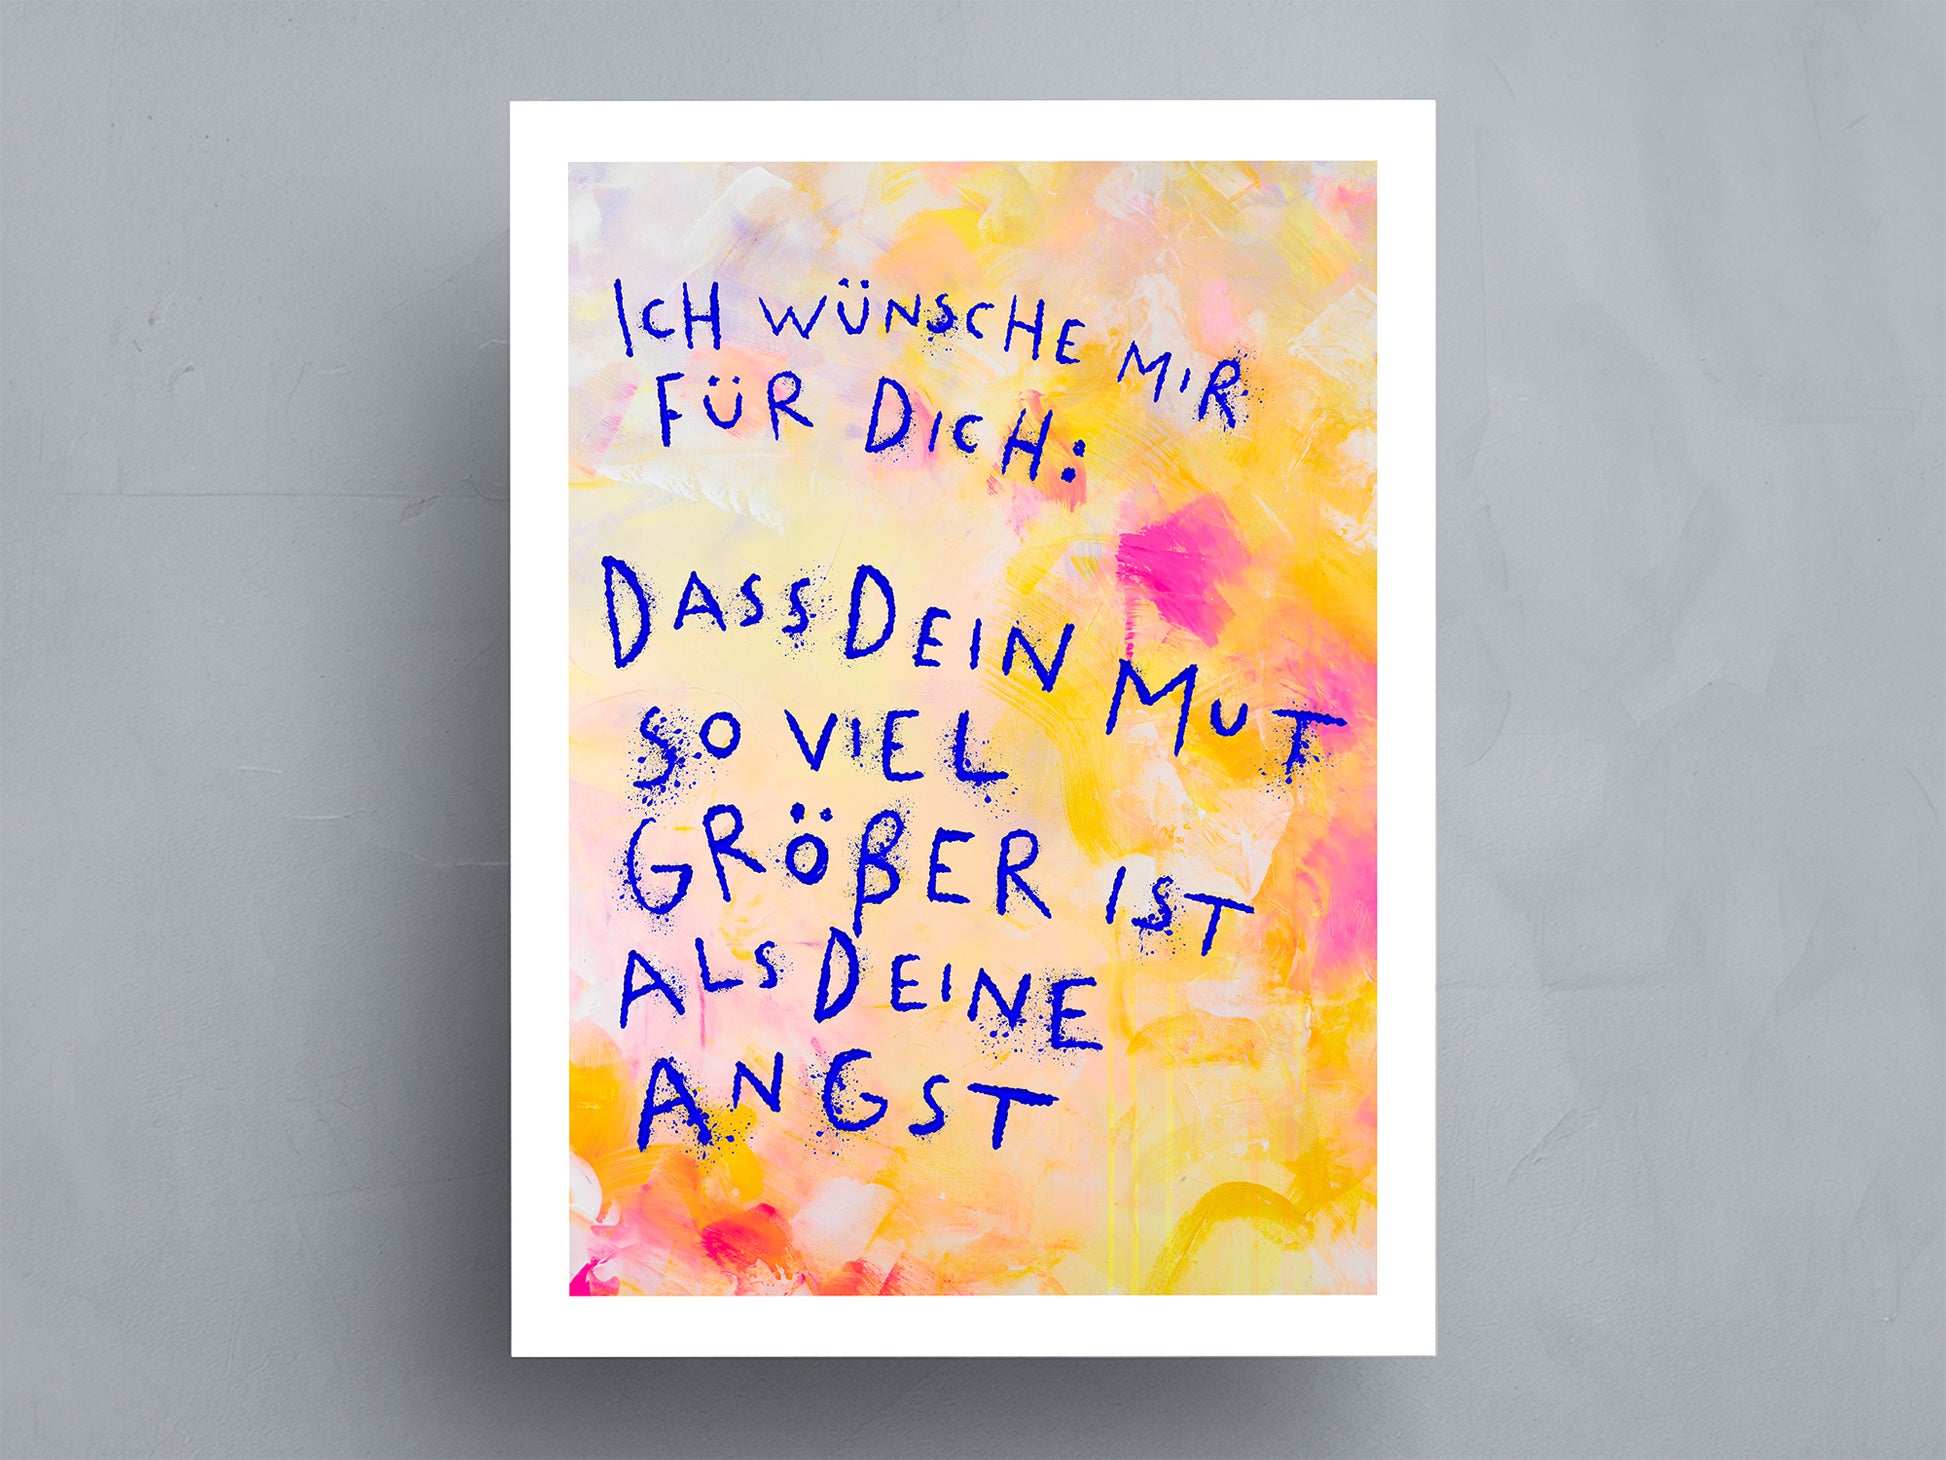 ICH WÜNSCHE MIR
FÜR DICH:
DASS DEIN MUT
SO VIEL
GRÖßER IST
ALS DEINE
ANGST